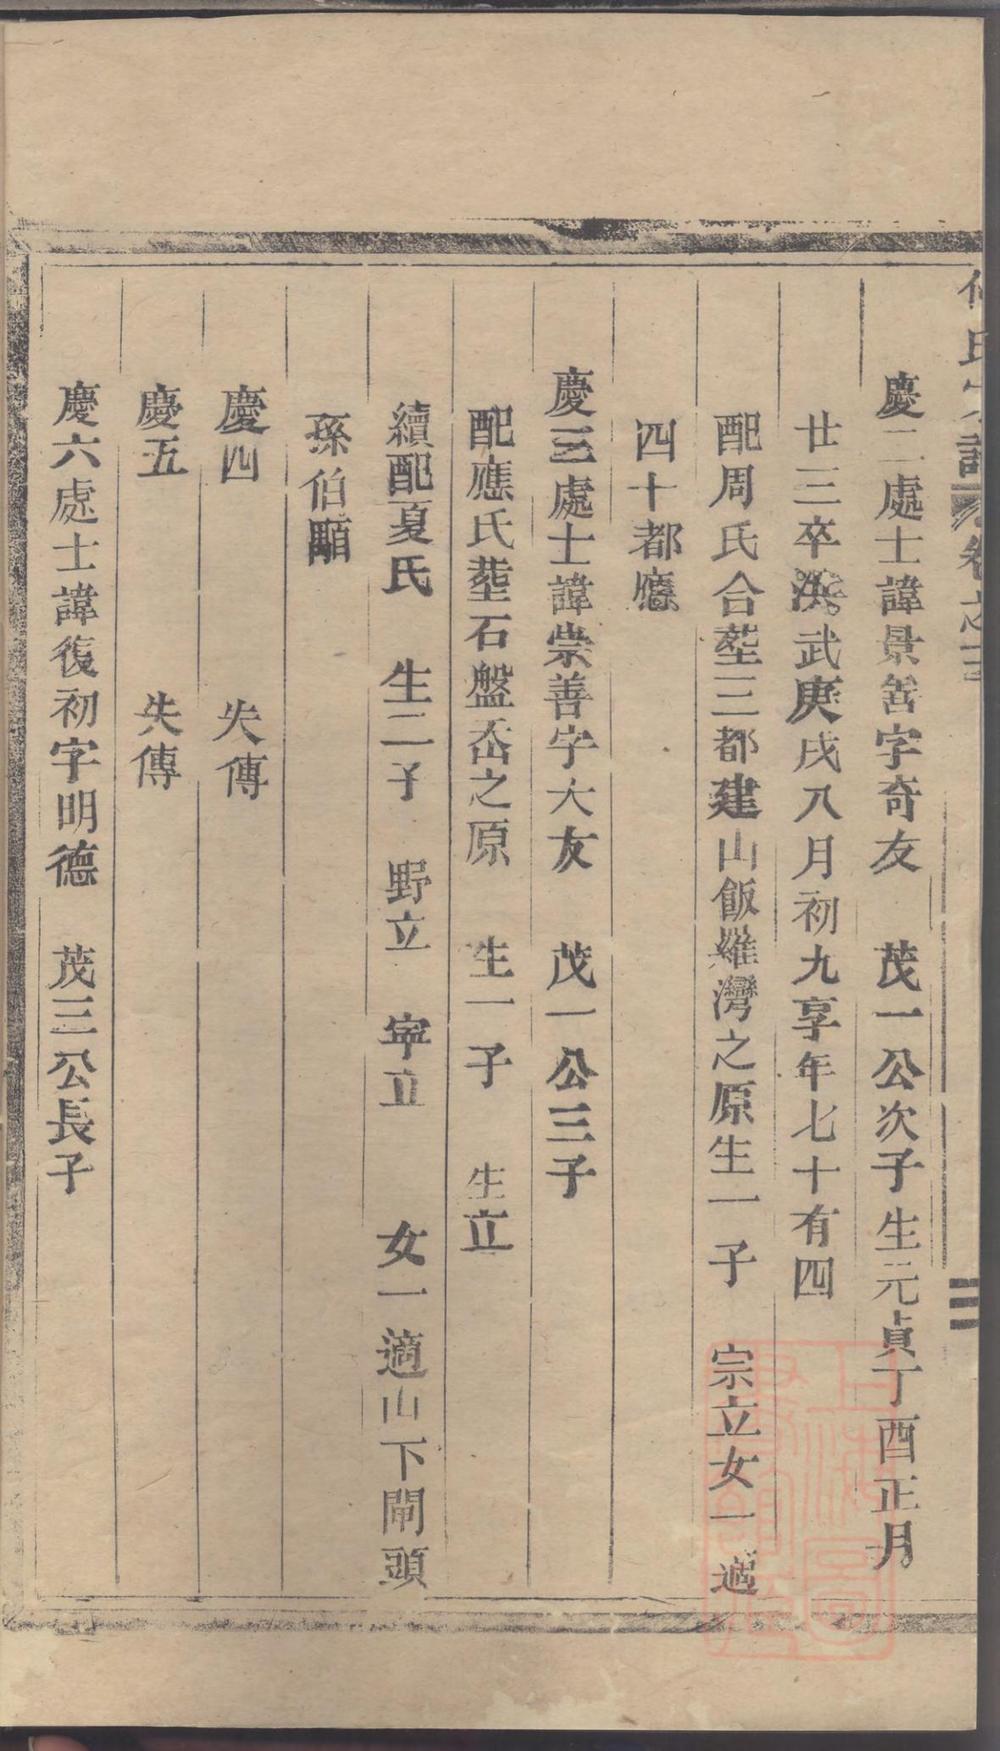 氏宗譜 卷之三 三
慶二處士諱景善字奇友 茂一公次子生元貞丁酉正月
廿三卒洪武庚戌八月初九享年七十有四
配周氏合塟三都建山飯羅灣之原生一子 宗立女一適
四十都應
慶三處士諱崇善字大友 茂一公三子
配應氏塟石盤岙之原 生一子 生立
續配夏氏 生二子 野立 宰立 女一適山下閘頭
孫伯顒
慶四 失傳
慶五 失傳
慶六處士諱復初字明德 茂三公長子